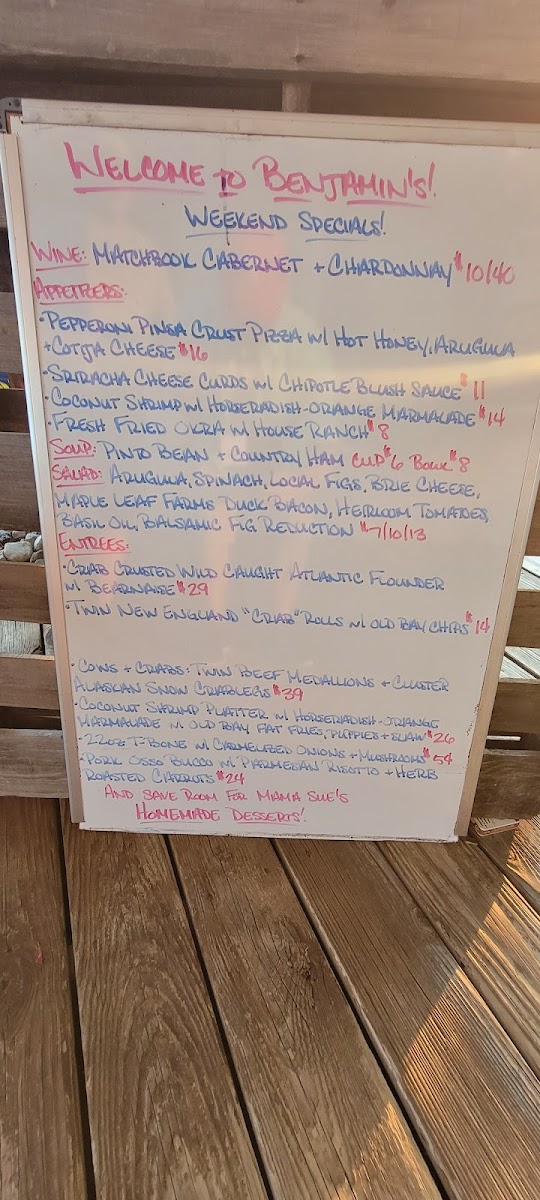 WELCOME TO BENJAMIN'S!
WEEKEND SPECIALS!
WINE: MATCHBOOK CABERNET + CHARDONNAY $10/40
APPETIZERS:
• PEPPERONI PINSA CRUST PIZZA W/ HOT HONEY, ARUGULA
+ COTIJA CHEESE $16
• SRIRACHA CHEESE CURDS W/ CHIPOTLE BLUSH SAUCE $11
• COCONUT SHRIMP W/ HORSERADISH-ORANGE MARMALADE $14
• FRESH FRIED OKRA W/ HOUSE RANCH $8
SOUP: PINTO BEAN + COUNTRY HAM CUP $6 BOWL $8
SALAD: ARUGULA, SPINACH, LOCAL FIGS, BRIE CHEESE,
MAPLE LEAF FARMS DUCK BACON, HEIRLOOM TOMATOES,
BASIL OIL, BALSAMIC FIG REDUCTION $7/10/13
ENTREES:
• CRAB CRUSTED WILD CAUGHT ATLANTIC FLOUNDER
W/ BEARNAISE $29
• TWIN NEW ENGLAND "CRAB" ROLLS W/ OLD BAY CHIPS $14
• COWS + CRABS: TWIN BEEF MEDALLIONS + CLUSTER
ALASKAN SNOW CRABLEGS $39
• COCONUT SHRIMP PLATTER W/ HORSERADISH-ORANGE
MARMALADE W/ OLD BAY FAT FRIES, PUPPIES + SLAW $26
• 22OZ T-BONE W/ CARMELIZED ONIONS + MUSHROOMS $54
• PORK OSSO BUCCO W/ PARMESAN RISOTTO + HERB
ROASTED CARROTS $24
AND SAVE ROOM FOR MAMA SUE'S
HOMEMADE DESSERTS!